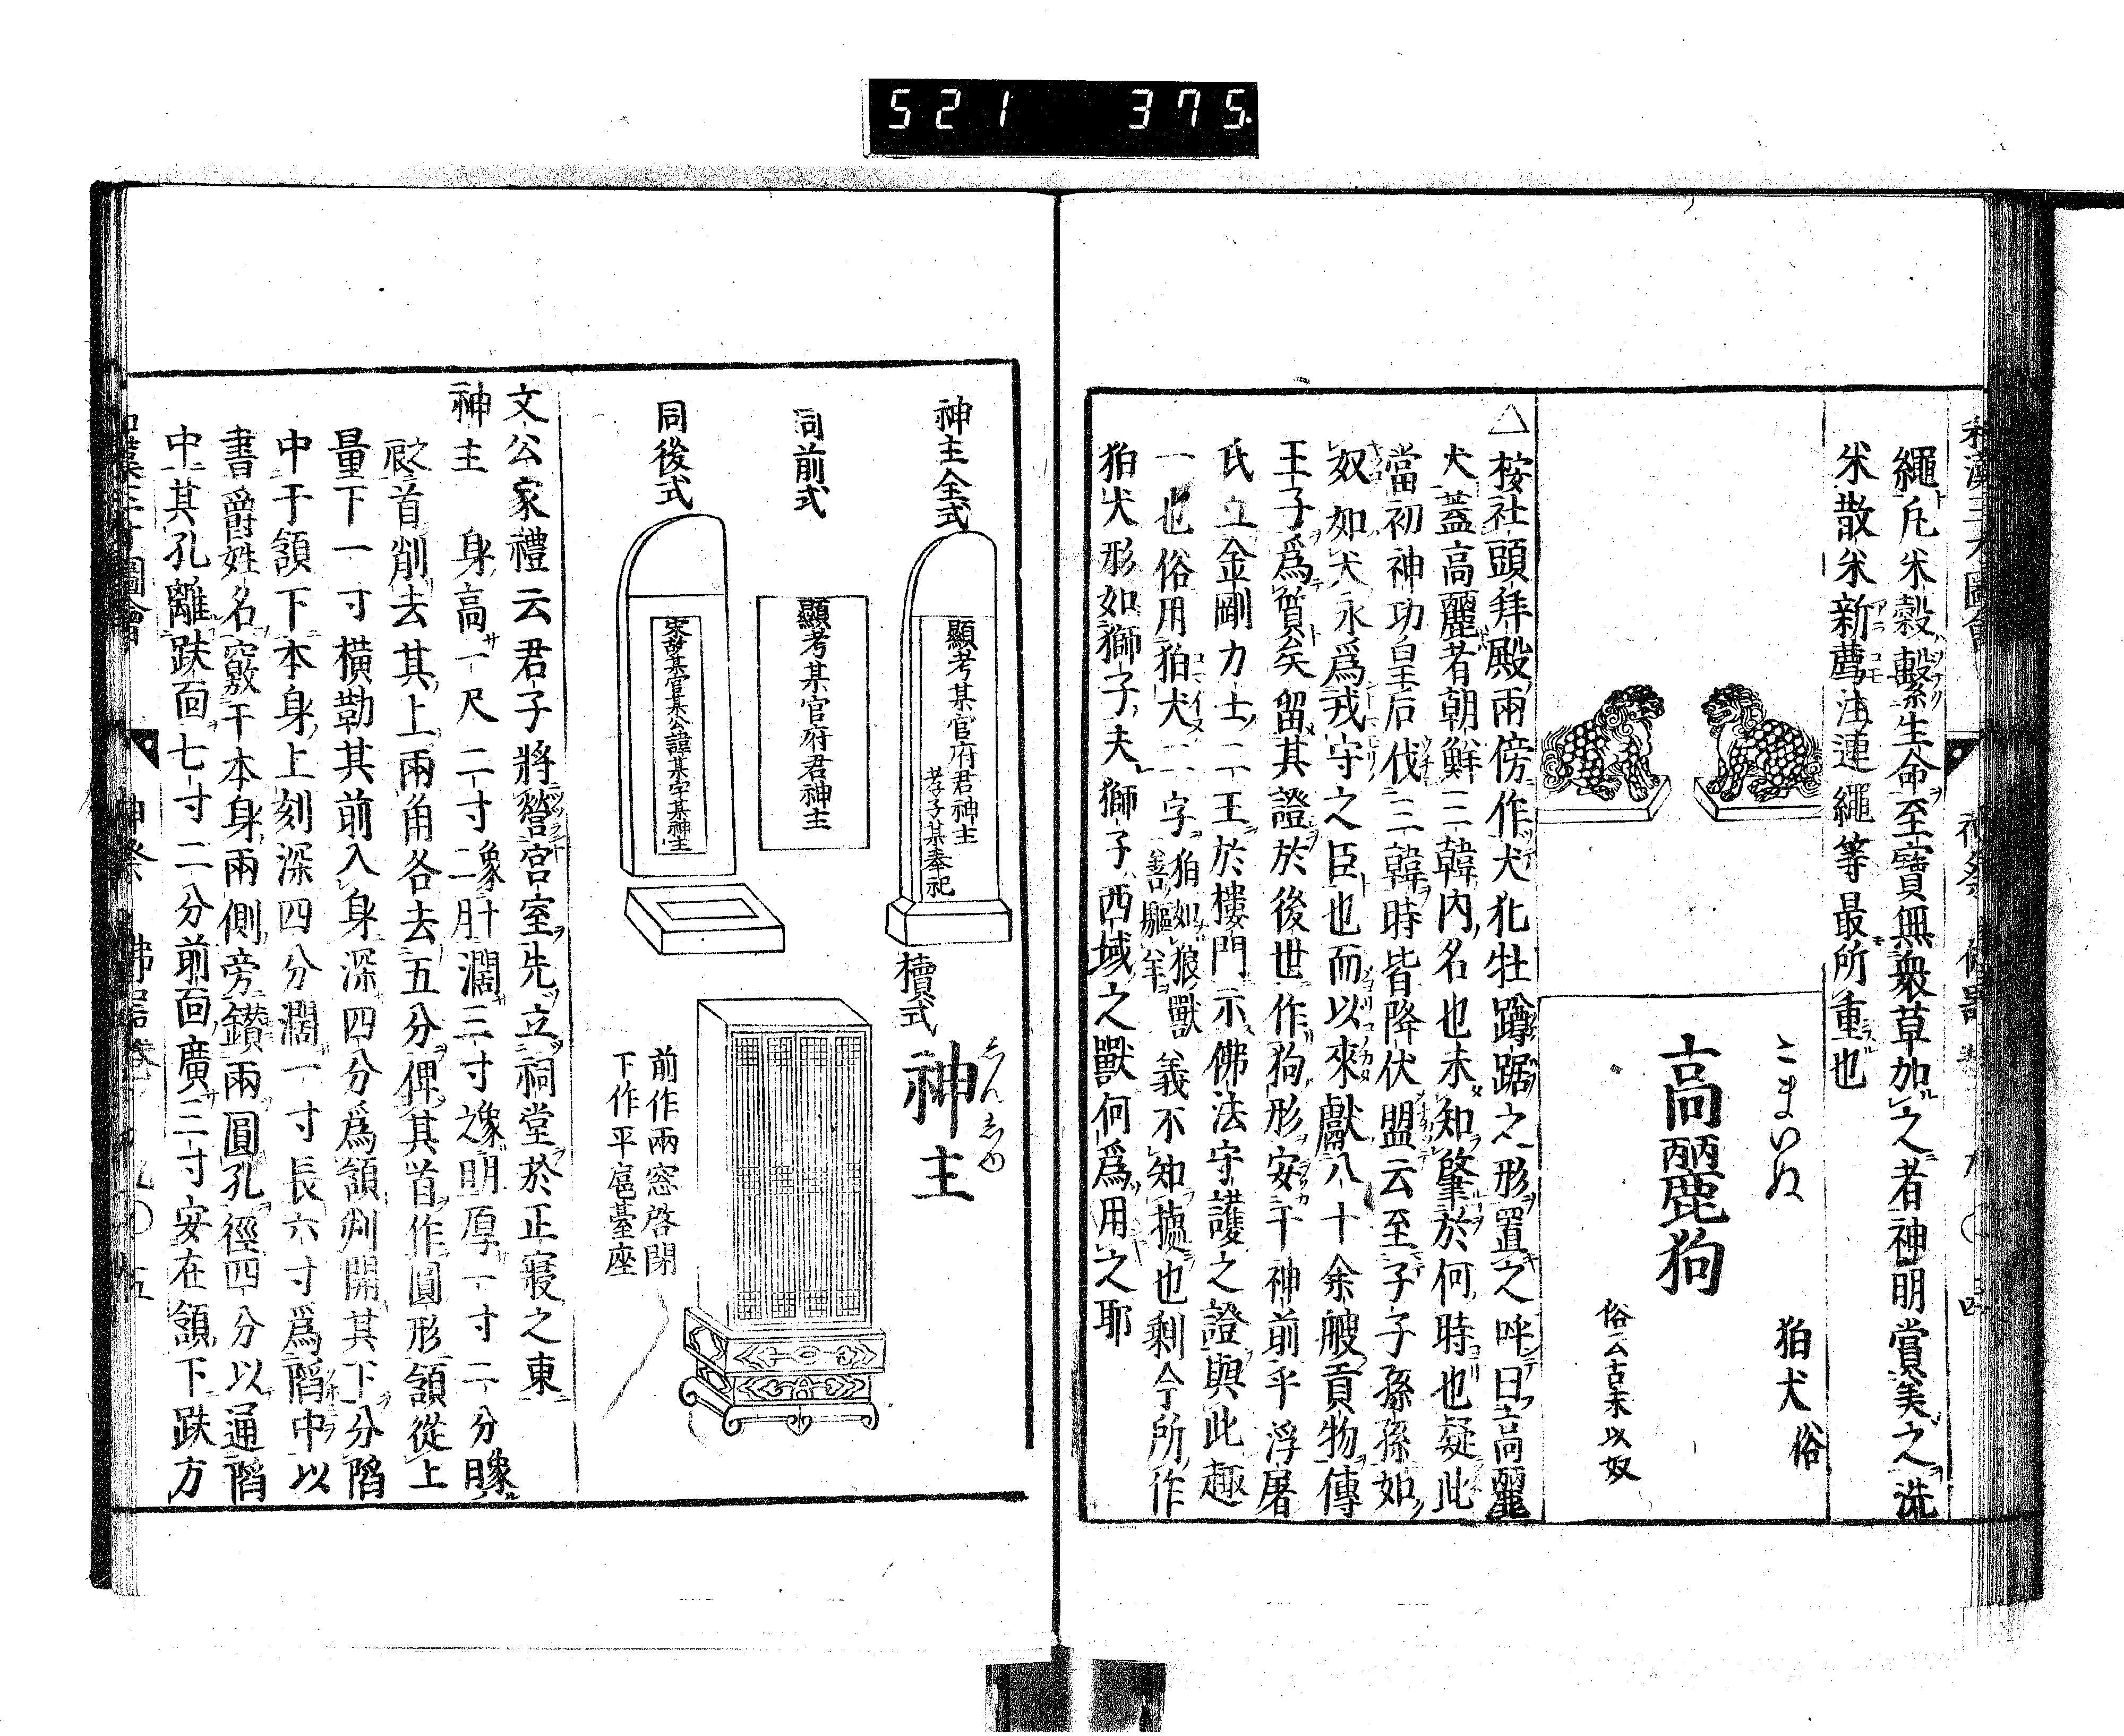 521 375.
和漢三才圖會
神祭
繩斥米穀繫生命至寶無衆草加之者神明賞美之洗
米散米新薦注連繩等最所重也
こまいぬ
高麗狗
狛犬 俗
俗云古末以奴
△按社頭拜殿兩傍作犬牝牡蹲踞之形置之呼曰高麗
犬蓋高麗者朝鮮三韓内名也未知肇於何時也疑此
當初神功皇后伐三韓時皆降伏盟云至子子孫孫如
奴如犬永爲戎守之臣也而以來獻八十余艘貢物傳
王子爲質矣留其證於後世作狗形安于神前乎浮屠
氏立金剛力士二王於樓門示佛法守護之證與此趣
一也俗用狛犬二字狛如狼獸善驅羊義不知據也剩今所作
狛犬形如獅子夫獅子西域之獸何爲用之耶
神主全式
顯考某官府君神主
孝子某奉祀
同前式
顯考某官府君神主
同後式
宋故某官某公諱某字某神主
櫝式
しんしゆ
神主
前作兩窓啓閉
下作平扈臺座
文公家禮云君子將營宮室先立祠堂於正寢之東
神主 身高一尺二寸像二肝濶三寸像明厚一寸二分像
之首削去其上兩角各去五分俾其首作圓形頷從上
量下一寸橫勒其前入身深四分爲頷判開其下分陷
中于頷下本身上刻深四分濶一寸長六寸爲陷中以
書爵姓名竅于本身兩側旁鑽兩圓孔徑四分以通陷
中其孔離趺面七寸二分前面廣三寸安在頷下趺方